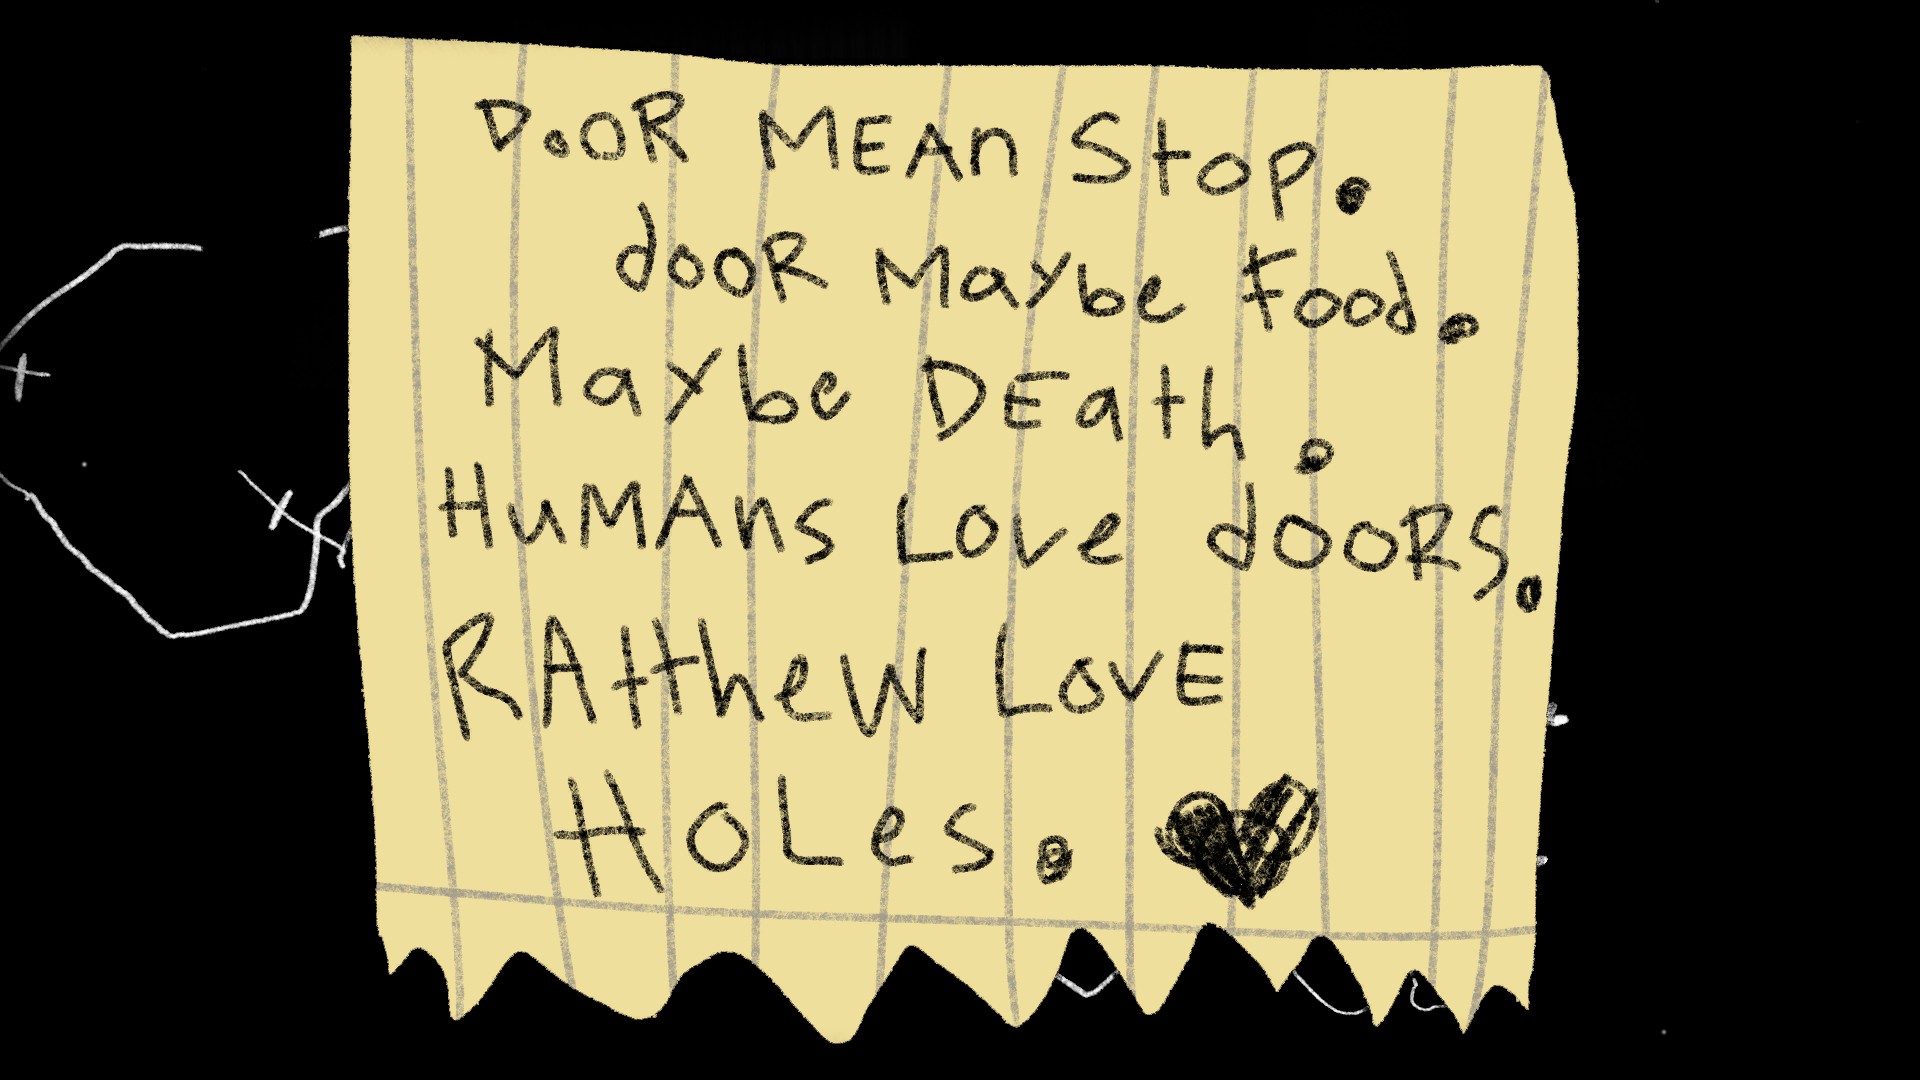 DooR MEAn Stop.
dooR Maybe Food.
Maybe DEath.
HuMAns Love dOORS.
RAtthew LovE
HoLes. ♥